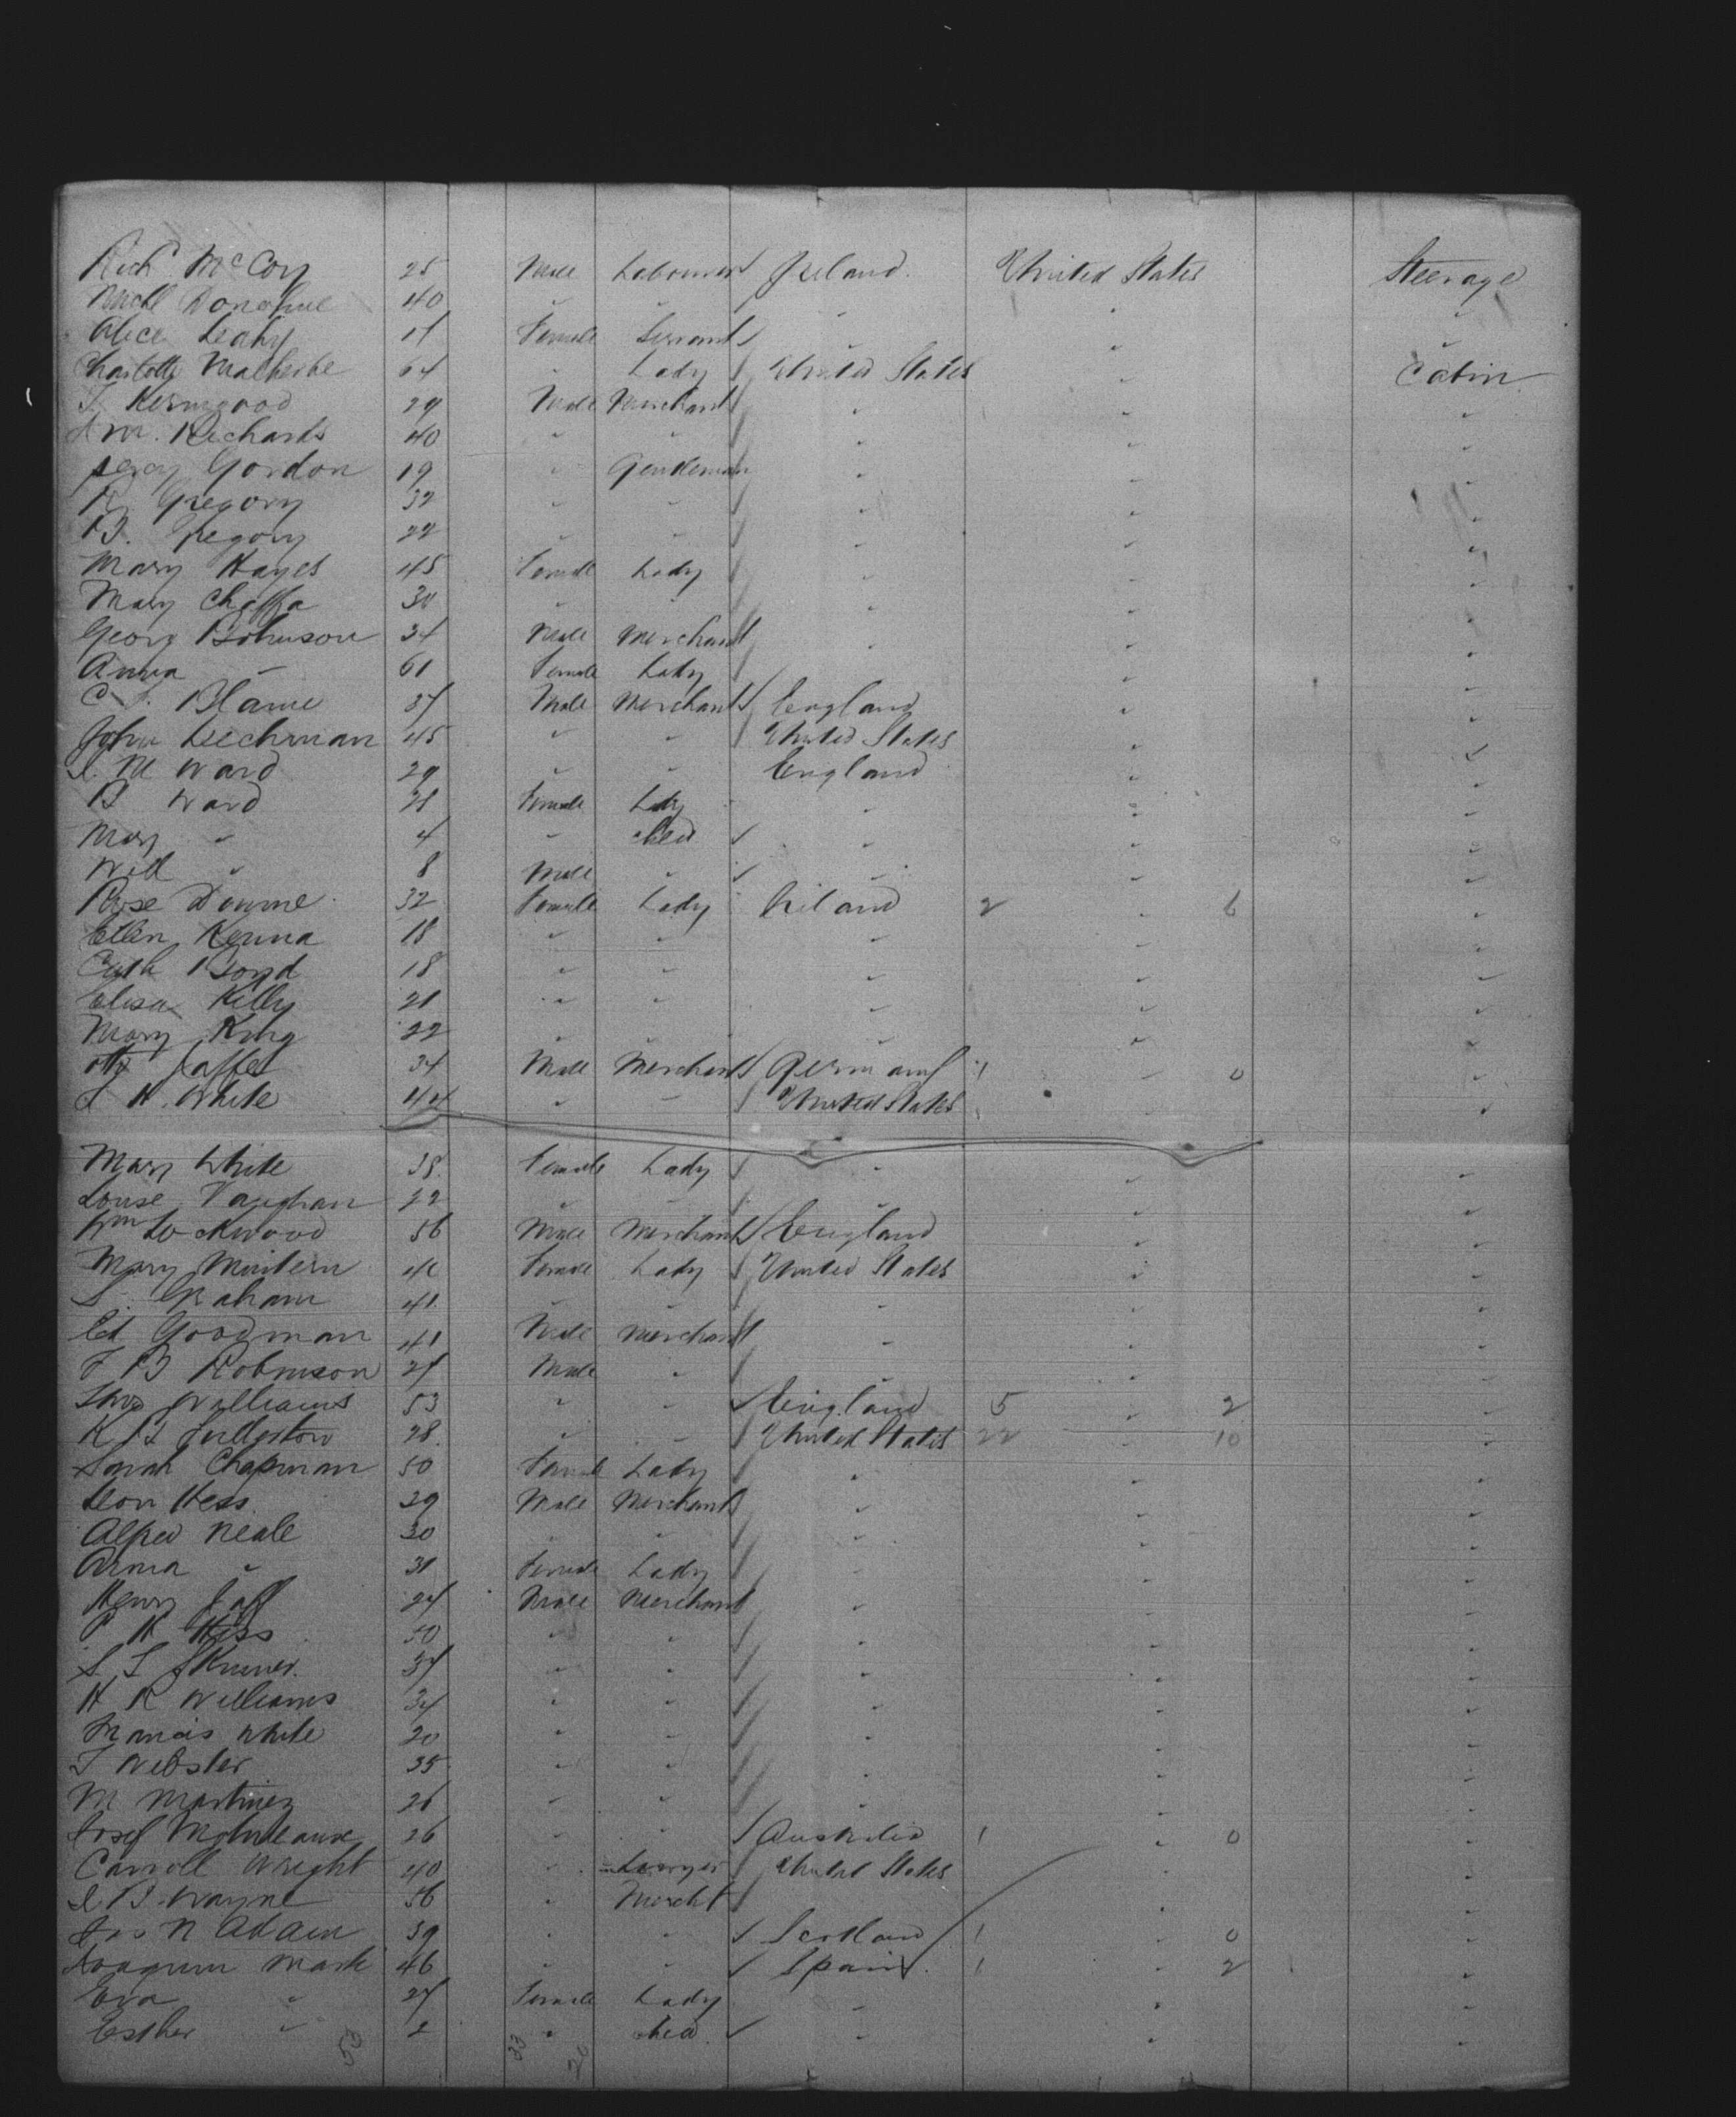 Richd McCoy 25 Male Labourer Ireland. United States Steerage
Michl Donahue 40 " " " " "
Alice Leahy 17 Female Servant " " "
Charlotte Malherbe 64 " Lady United States " Cabin
29 Male Merchant " " "
M. Richards 40 " " " " "
Percy Gordon 19 " Gentleman " " "
R. Gregory 32 " " " " "
B. Gregory 22 " " " " "
Mary Hayes 45 Female Lady " " "
Mary Chaffa 30 " " " " "
Georg Johnson 34 Male Merchant " " "
Anna " 61 Female Lady " "
C. F. Blame 37 Male Merchant England " "
John Leechman 45 " " United States " "
M Ward 29 " " England " "
B Ward 28 Female Lady " " "
Mary " 4 " child " " "
Will " 8 Male " " " "
Rose Downe 32 Female Lady Ireland 2 " 6 "
Ellen Kenna 18 " " " " "
Cath Boyd 18 " " " " "
Elisa Kelly 21 " " " " "
Mary King 22 " " " " "
Otto Jaffe 34 Male Merchant Germany 1 " 0 "
H. White 44 " " United States " "
Mary White 38 Female Lady " " "
Louise Vaughan 22 " " " " "
Wm Lockwood 56 Male Merchant England " "
Mary Mintern Female Lady United States " "
S. Graham 41 " " " " "
Ed Goodman 41 Male Merchant " " "
F B Robinson 27 Male " " "
Williams 53 " " England 5 " 2 "
K B Fullerton 28 " " United States 22 " 10 "
Sarah Chapman 50 Female Lady " " "
Leon Hess 29 Male Merchant " " "
Alfred Neale 30 " " " " "
Anna " 31 Female Lady " " "
Henry 24 Male Merchant " " "
P H Hess 50 " " " " "
S. S Skinner. 37 " " " " "
H R Williams 34 " " " " "
Francis White 20 " " " " "
T Webster 35 " " " " "
M Martinez 26 " " " " "
Josef 26 " " Australia 1 " 0 "
Carroll Wright 40 " Lawyer United States " "
B. Wayne 56 " Mercht " "
Jas N Adam 39 " " Scotland 1 " 0 "
Joaquim Mark 46 " " Spain. 1 " 2 "
Eva " 27 Female Lady " " "
Esther " 2 " child " " "
53 33 20